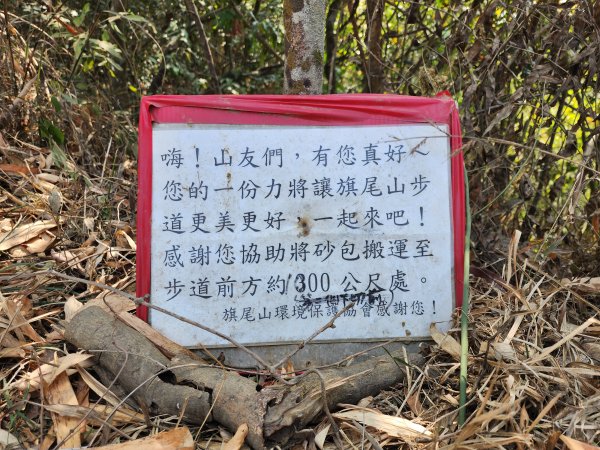 嗨！山友們，有您真好～
您的一份力將讓旗尾山步
道更美更好，一起來吧！
感謝您協助將砂包搬運至
步道前方約1300公尺處。
旗尾山環境保護協會感謝您！